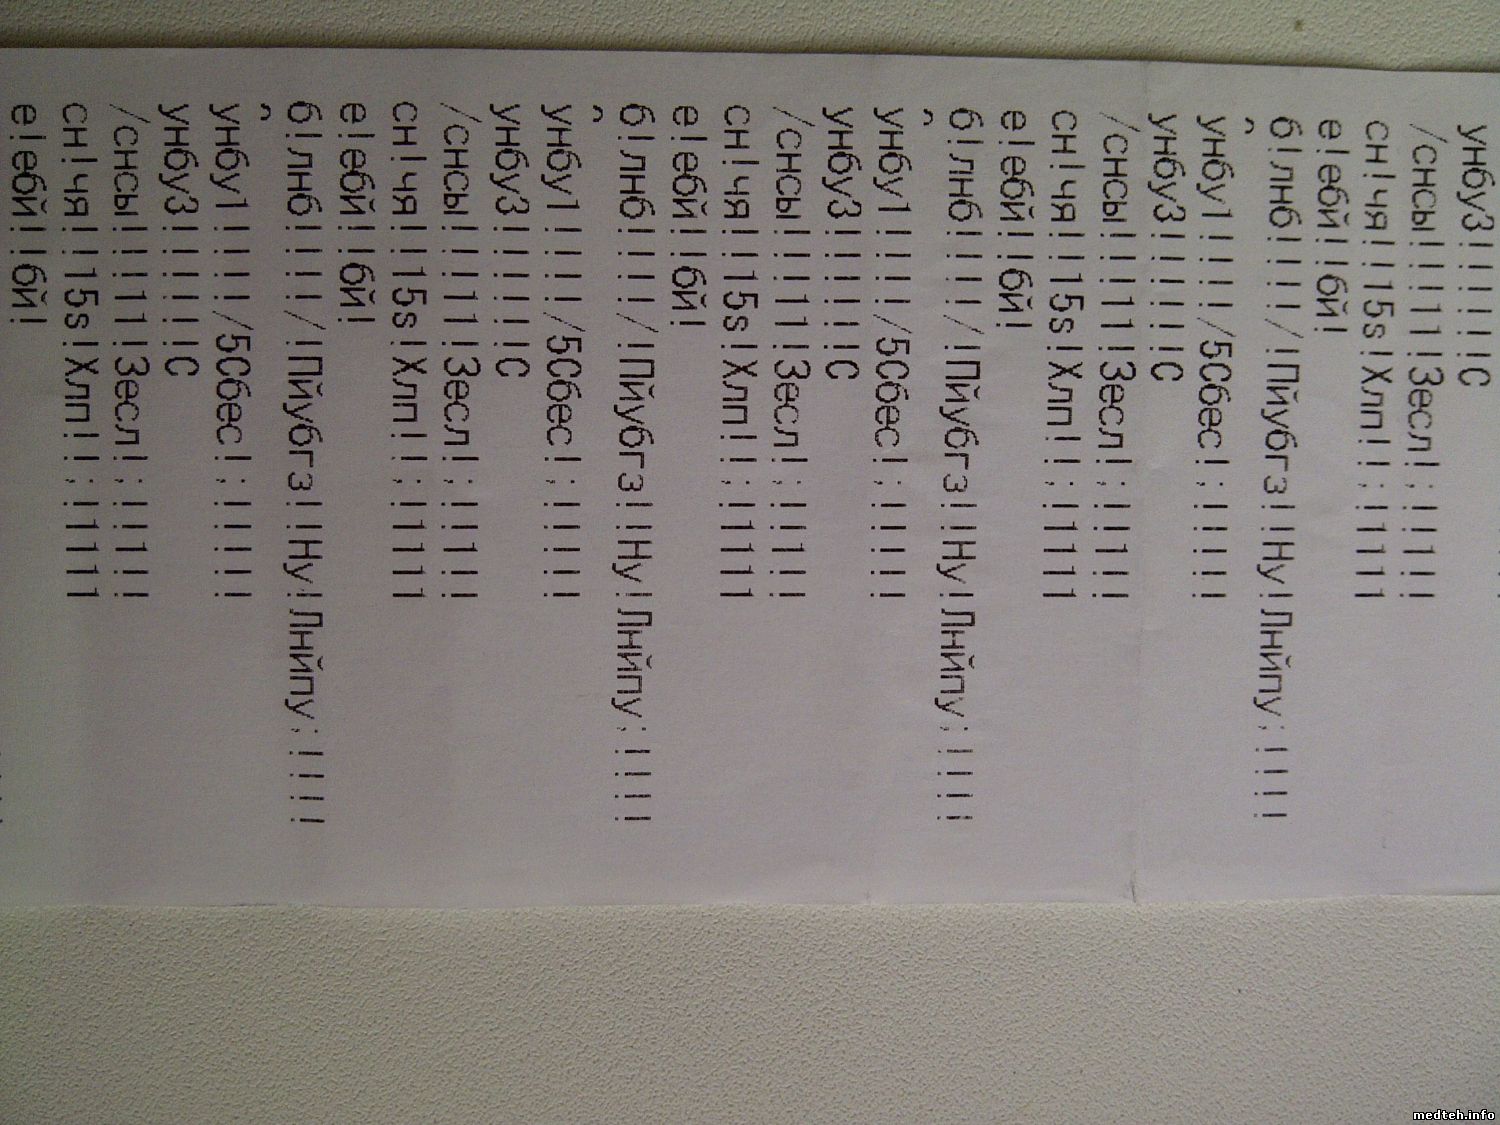 унбу3!!!!!!С
/снсы!!!!11!3есл!;!!1!!
сн!чя!!15s!Хлп!!;!1111
е!ебй!!бй!
б!лнб!!!!/!Пйубгз!!Ну!Лнйпу;!!!!
унбу1!!!!/5Сбес!;!!!!!
унбу3!!!!!!С
/снсы!!!!11!3есл!;!!1!!
сн!чя!!15s!Хлп!!;!1111
е!ебй!!бй!
б!лнб!!!!/!Пйубгз!!Ну!Лнйпу;!!!!
унбу1!!!!/5Сбес!;!!!!!
унбу3!!!!!!С
/снсы!!!!11!3есл!;!!1!!
сн!чя!!15s!Хлп!!;!1111
е!ебй!!бй!
б!лнб!!!!/!Пйубгз!!Ну!Лнйпу;!!!!
унбу1!!!!/5Сбес!;!!!!!
унбу3!!!!!!С
/снсы!!!!11!3есл!;!!1!!
сн!чя!!15s!Хлп!!;!1111
е!ебй!!бй!
б!лнб!!!!/!Пйубгз!!Ну!Лнйпу;!!!!
унбу1!!!!/5Сбес!;!!!!!
унбу3!!!!!!С
/снсы!!!!11!3есл!;!!1!!
сн!чя!!15s!Хлп!!;!1111
е!ебй!!бй!
medteh.info